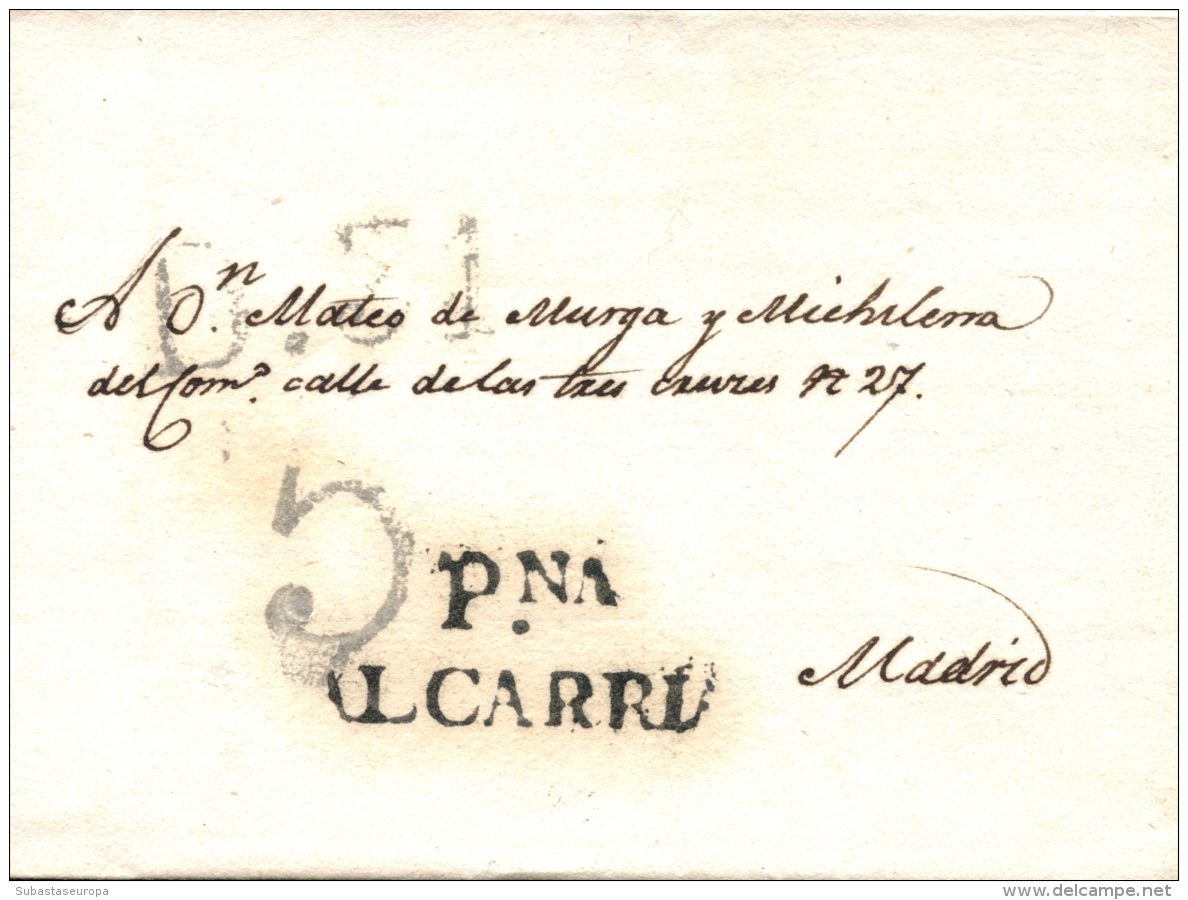 A D.n Mateo de Murga y Michelena
del Com.o calle de las tres cruzes N 27.
5
P.NA
ALCARRIA
Madrid
Subastaseuropa
www.delcampe.net